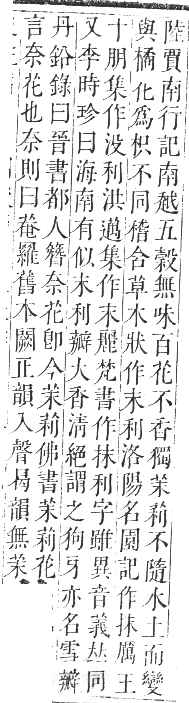 陸賈南行記南越五穀無味百花不香獨茉莉不隨水土而變
與橘化爲枳不同稽含草木狀作末利洛陽名園記作抹厲王
十朋集作没利洪邁集作末麗梵書作抹利字雖異音義並同
又李時珍曰海南有似末利瓣大香清絕謂之狗牙亦名雪瓣
丹鉛錄曰晉書都人簪柰花卽今茉莉佛書茉莉花
言柰花也柰則曰菴羅舊本闕正韻入聲曷韻無茉